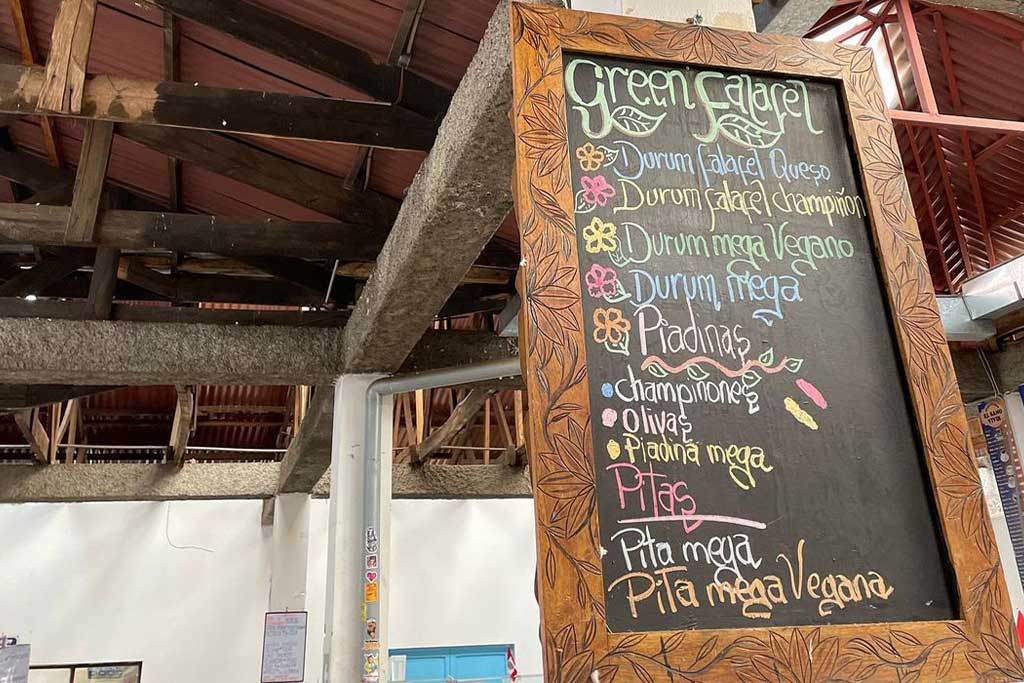 Green Falafel
Durum falafel Queso
Durum falafel champiñon
Durum mega Vegano
Durum mega
Piadinas
champiñones
olivas
Piadina mega
Pitas
Pita mega
Pita mega Vegana